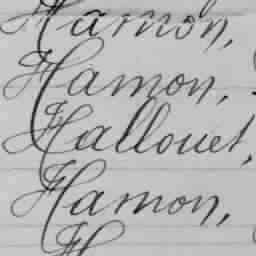 Hamon,
Hamon,
Hallouet,
Hamon,
H